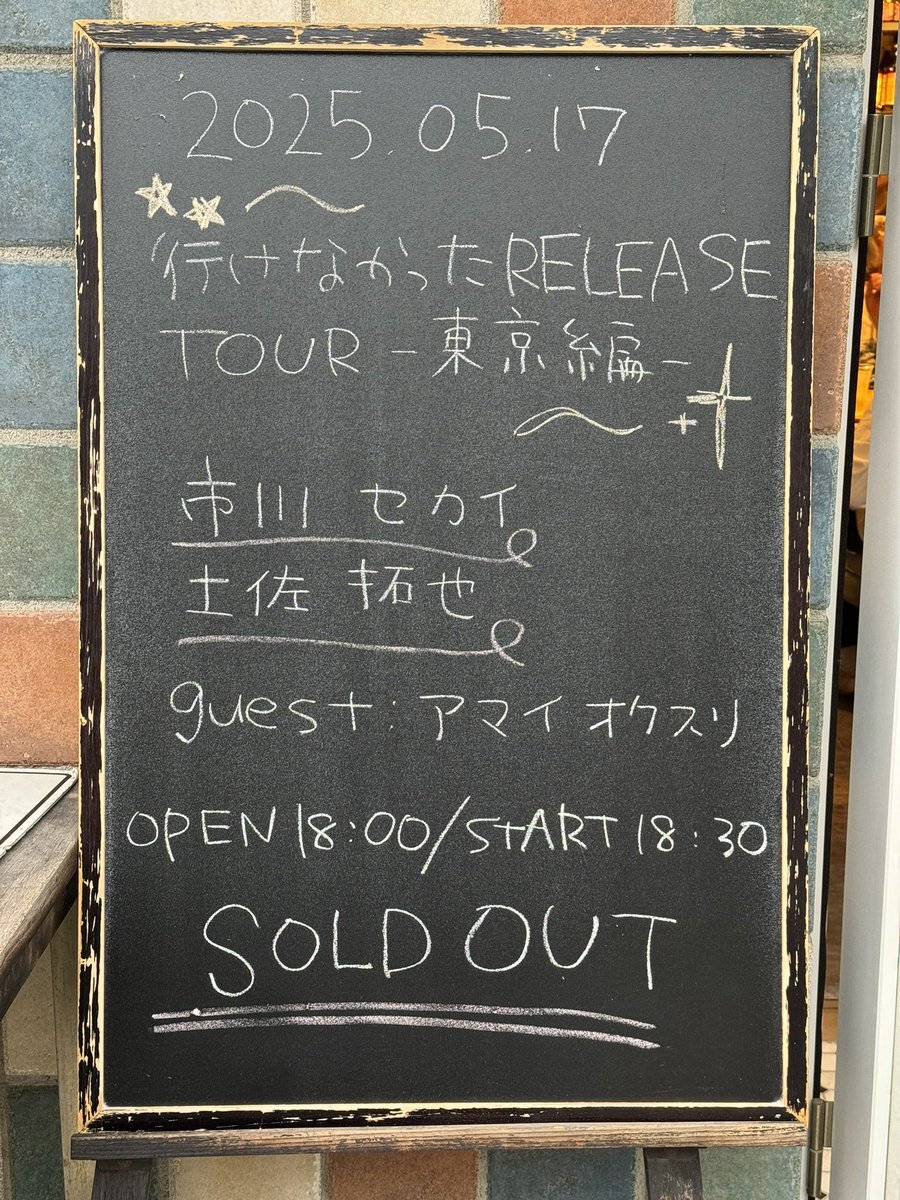 2025.05.17
行けなかったRELEASE
TOUR -東京編-
市川 セカイ
土佐 拓也
guest: アマイオクスリ
OPEN 18:00/START 18:30
SOLD OUT